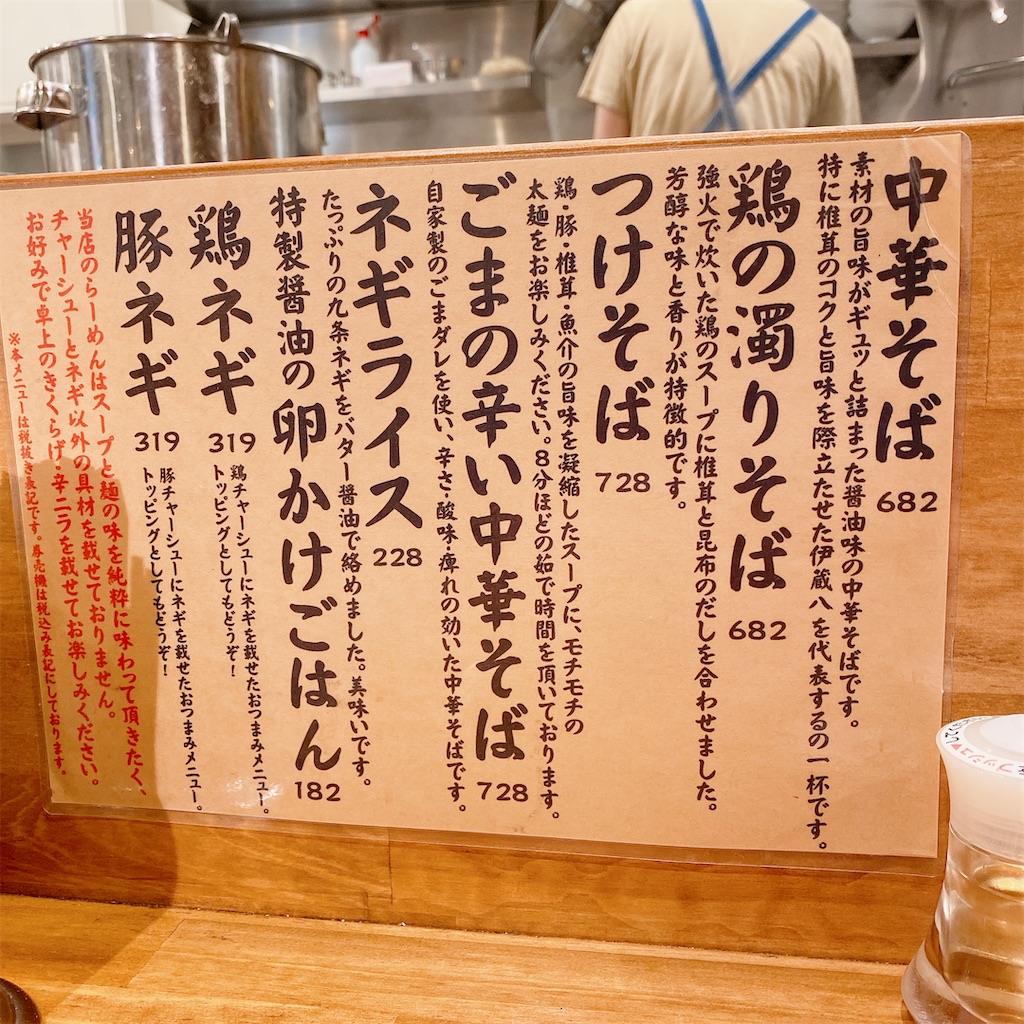 中華そば 682
素材の旨味がギュッと詰まった醤油味の中華そばです。
特に椎茸のコクと旨味を際立たせた伊蔵八を代表するの一杯です。
鶏の濁りそば 682
強火で炊いた鶏のスープに椎茸と昆布のだしを合わせました。
芳醇な味と香りが特徴的です。
つけそば 728
鶏・豚・椎茸・魚介の旨味を凝縮したスープに、モチモチの
太麺をお楽しみください。8分ほどの茹で時間を頂いております。
ごまの辛い中華そば 728
自家製のごまダレを使い、辛さ・酸味・痺れの効いた中華そばです。
ネギライス 228
たっぷりの九条ネギをバター醤油で絡めました。美味いです。
特製醤油の卵かけごはん 182
鶏ネギ 319
鶏チャーシューにネギを載せたおつまみメニュー。
トッピングとしてもどうぞ！
豚ネギ 319
豚チャーシューにネギを載せたおつまみメニュー。
トッピングとしてもどうぞ！
当店のらーめんはスープと麺の味を純粋に味わって頂きたく、
チャーシューとネギ以外の具材を載せておりません。
お好みで卓上のきくらげ・辛ニラを載せてお楽しみください。
※本メニューは税抜き表記です。券売機は税込み表記にしております。
プッシュ